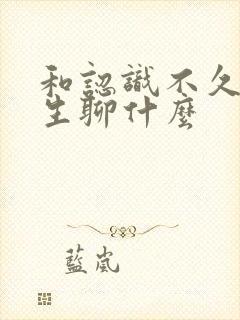 和認識不久
生聊什麼
藍嵐